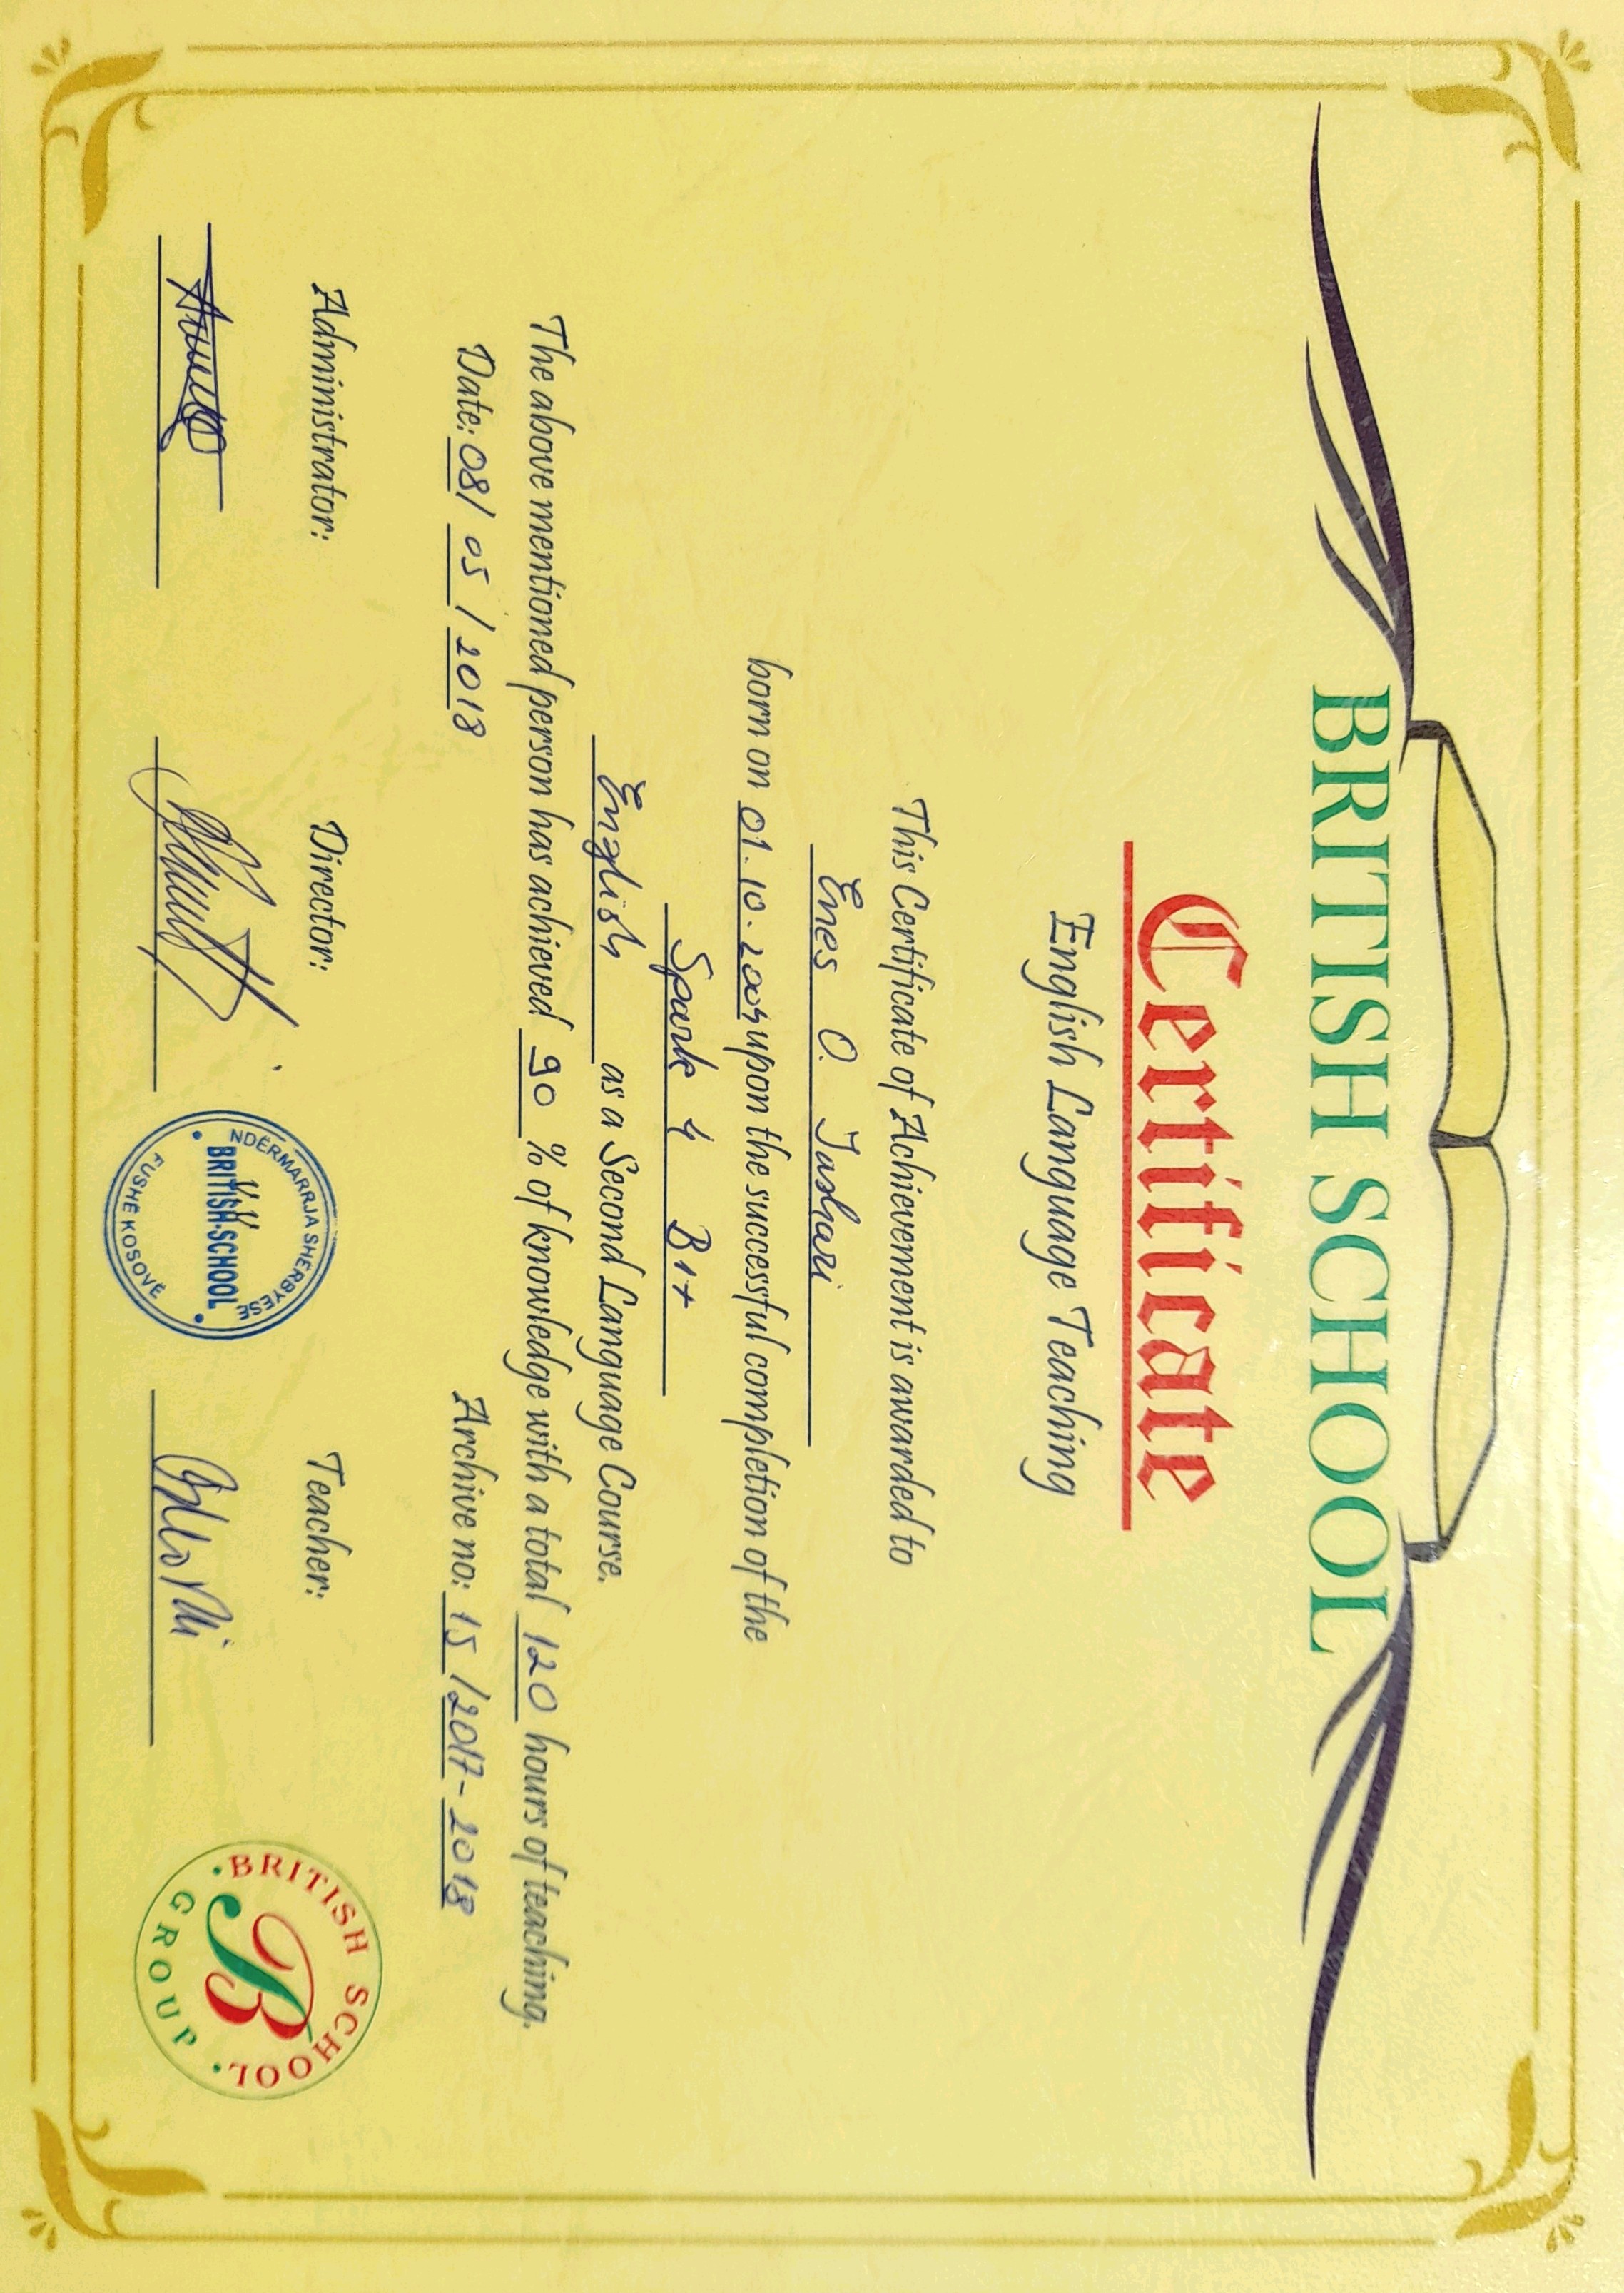 BRITISH SCHOOL
Certificate
English Language Teaching
This Certificate of Achievement is awarded to
Enes O. Jashari
born on 01.10.2004 upon the successful completion of the
Spark 4 B1+
English as a Second Language Course.
The above mentioned person has achieved 90 % of knowledge with a total 120 hours of teaching.
Date: 08/ 05 / 2018 Archive no: 15 /2017-2018
Administrator: Director: Teacher:
NDËRMARRJA SHËRBYESE
BRITISH-SCHOOL
FUSHË KOSOVË
BRITISH SCHOOL
B
GROUP